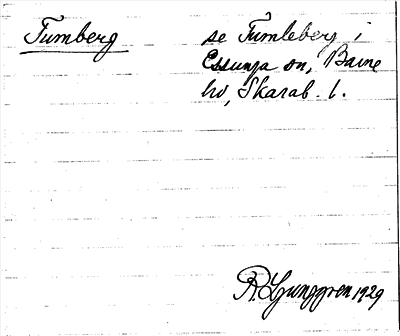 Tumberg
se Tumleberg i
Essunga sn, Barne
hd, Skarab. l.
R. Ljunggren 1929